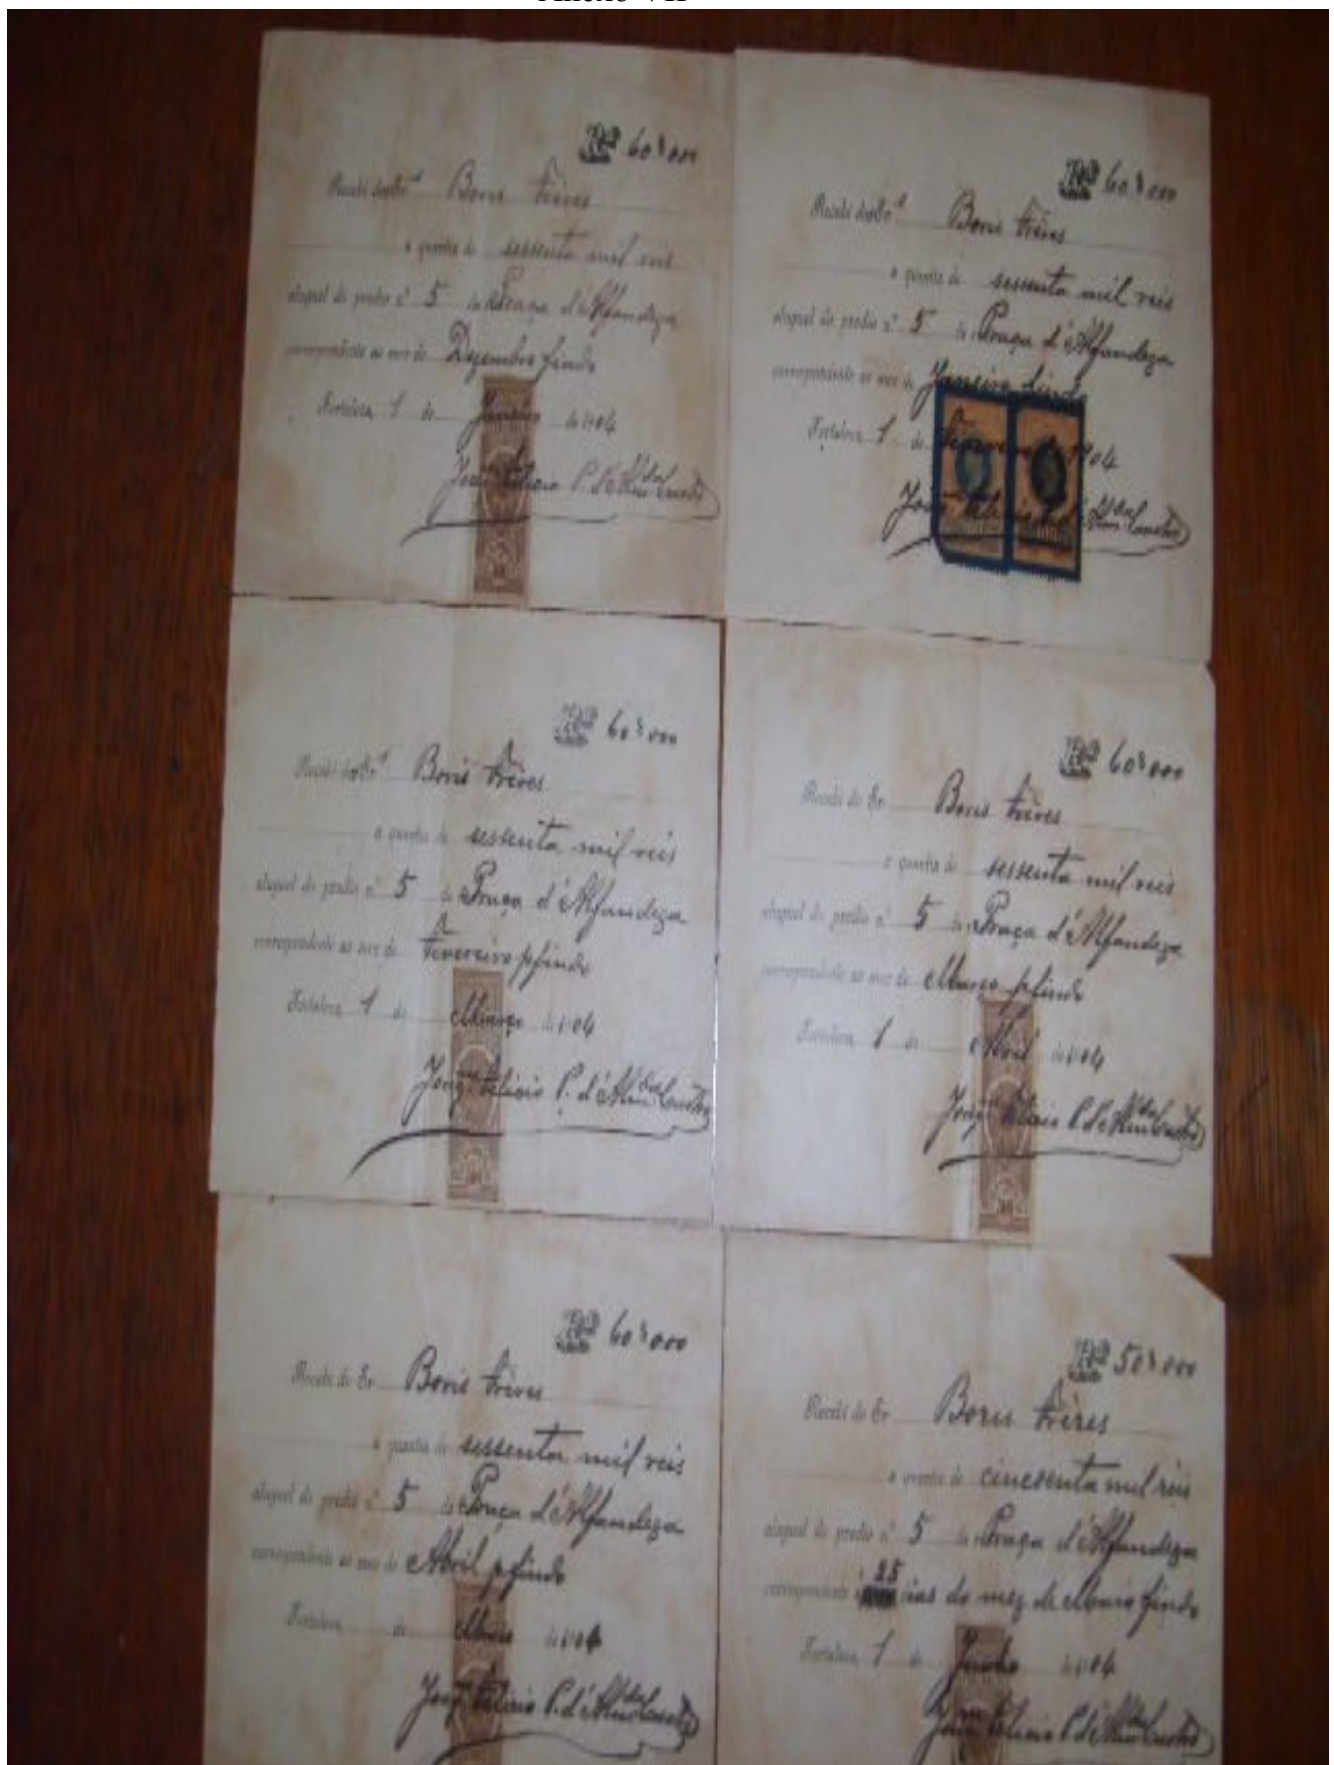 Anexo VII
Rs 60$000
Recebi dos Srs Boris Frères
a quantia de sessenta mil reis
aluguel do predio nº 5 da Praça d'Alfandega
correspondente ao mez de Dezembro findo
Fortaleza, 1 de Janeiro de 1904
Rs 60$000
Recebi dos Srs Boris Frères
a quantia de sessenta mil reis
aluguel do predio nº 5 da Praça d'Alfandega
correspondente ao mez de Janeiro findo
Fortaleza, 1 de Fevereiro de 1904
Rs 60$000
Recebi dos Srs Boris Frères
a quantia de sessenta mil reis
aluguel do predio nº 5 da Praça d'Alfandega
correspondente ao mez de Fevereiro pfindo
Fortaleza, 1 de Março de 1904
Rs 60$000
Recebi do Sr Boris Frères
a quantia de sessenta mil reis
aluguel do predio nº 5 da Praça d'Alfandega
correspondente ao mez de Março pfindo
Fortaleza, 1 de Abril de 1904
Rs 60$000
Recebi do Sr Boris Frères
a quantia de sessenta mil reis
aluguel do predio nº 5 da Praça d'Alfandega
correspondente ao mez de Abril pfindo
Fortaleza, de Maio de 1904
Rs 50$000
Recebi do Sr Boris Frères
a quantia de cincoenta mil reis
aluguel do predio nº 5 da Praça d'Alfandega
correspondente 25 dias do mez de Maio findo
Fortaleza, 1 de Junho de 1904